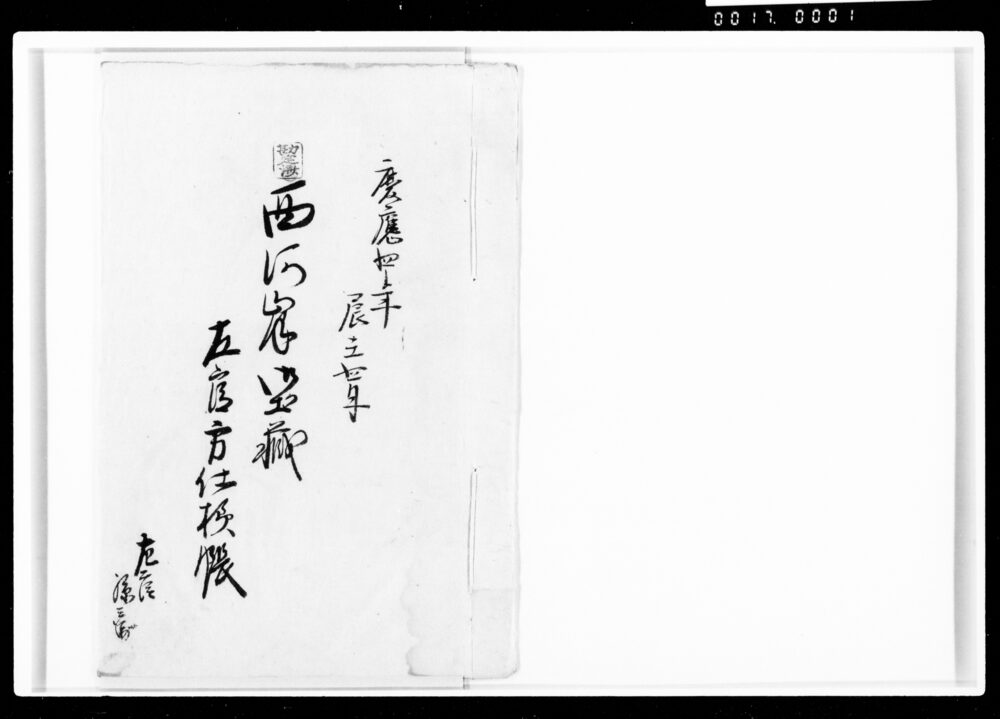 0017. 0001
慶應四年
辰壬四月
西河岸御土藏
左官方仕様帳
左官